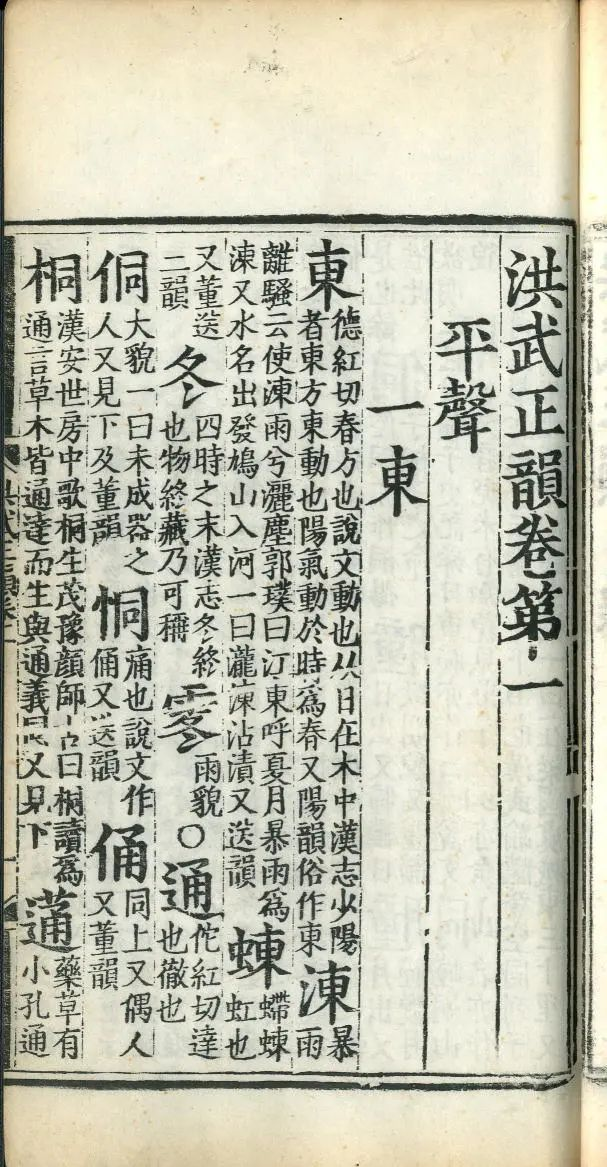 洪武正韻卷第一
平聲
一東
東德紅切春方也說文動也从日在木中漢志少陽者東方東動也陽氣動於時為春又陽韻俗作東涷暴雨
離騷云使涷雨兮灑塵郭璞曰江東呼夏月暴雨為涷又水名出發鳩山入河一曰瀧涷沾漬又送韻蝀螮蝀虹也
又董送二韻冬四時之末漢志冬終也物終藏乃可稱䨦雨貌○通佗紅切達也徹也
侗大貌一曰未成器之人又見下及董韻恫痛也說文作俑又送韻俑同上又偶人又董韻
桐漢安世房中歌桐生茂豫顏師古曰桐讀為通言草木皆通達而生與通義同又見下蓪藥草有小孔通